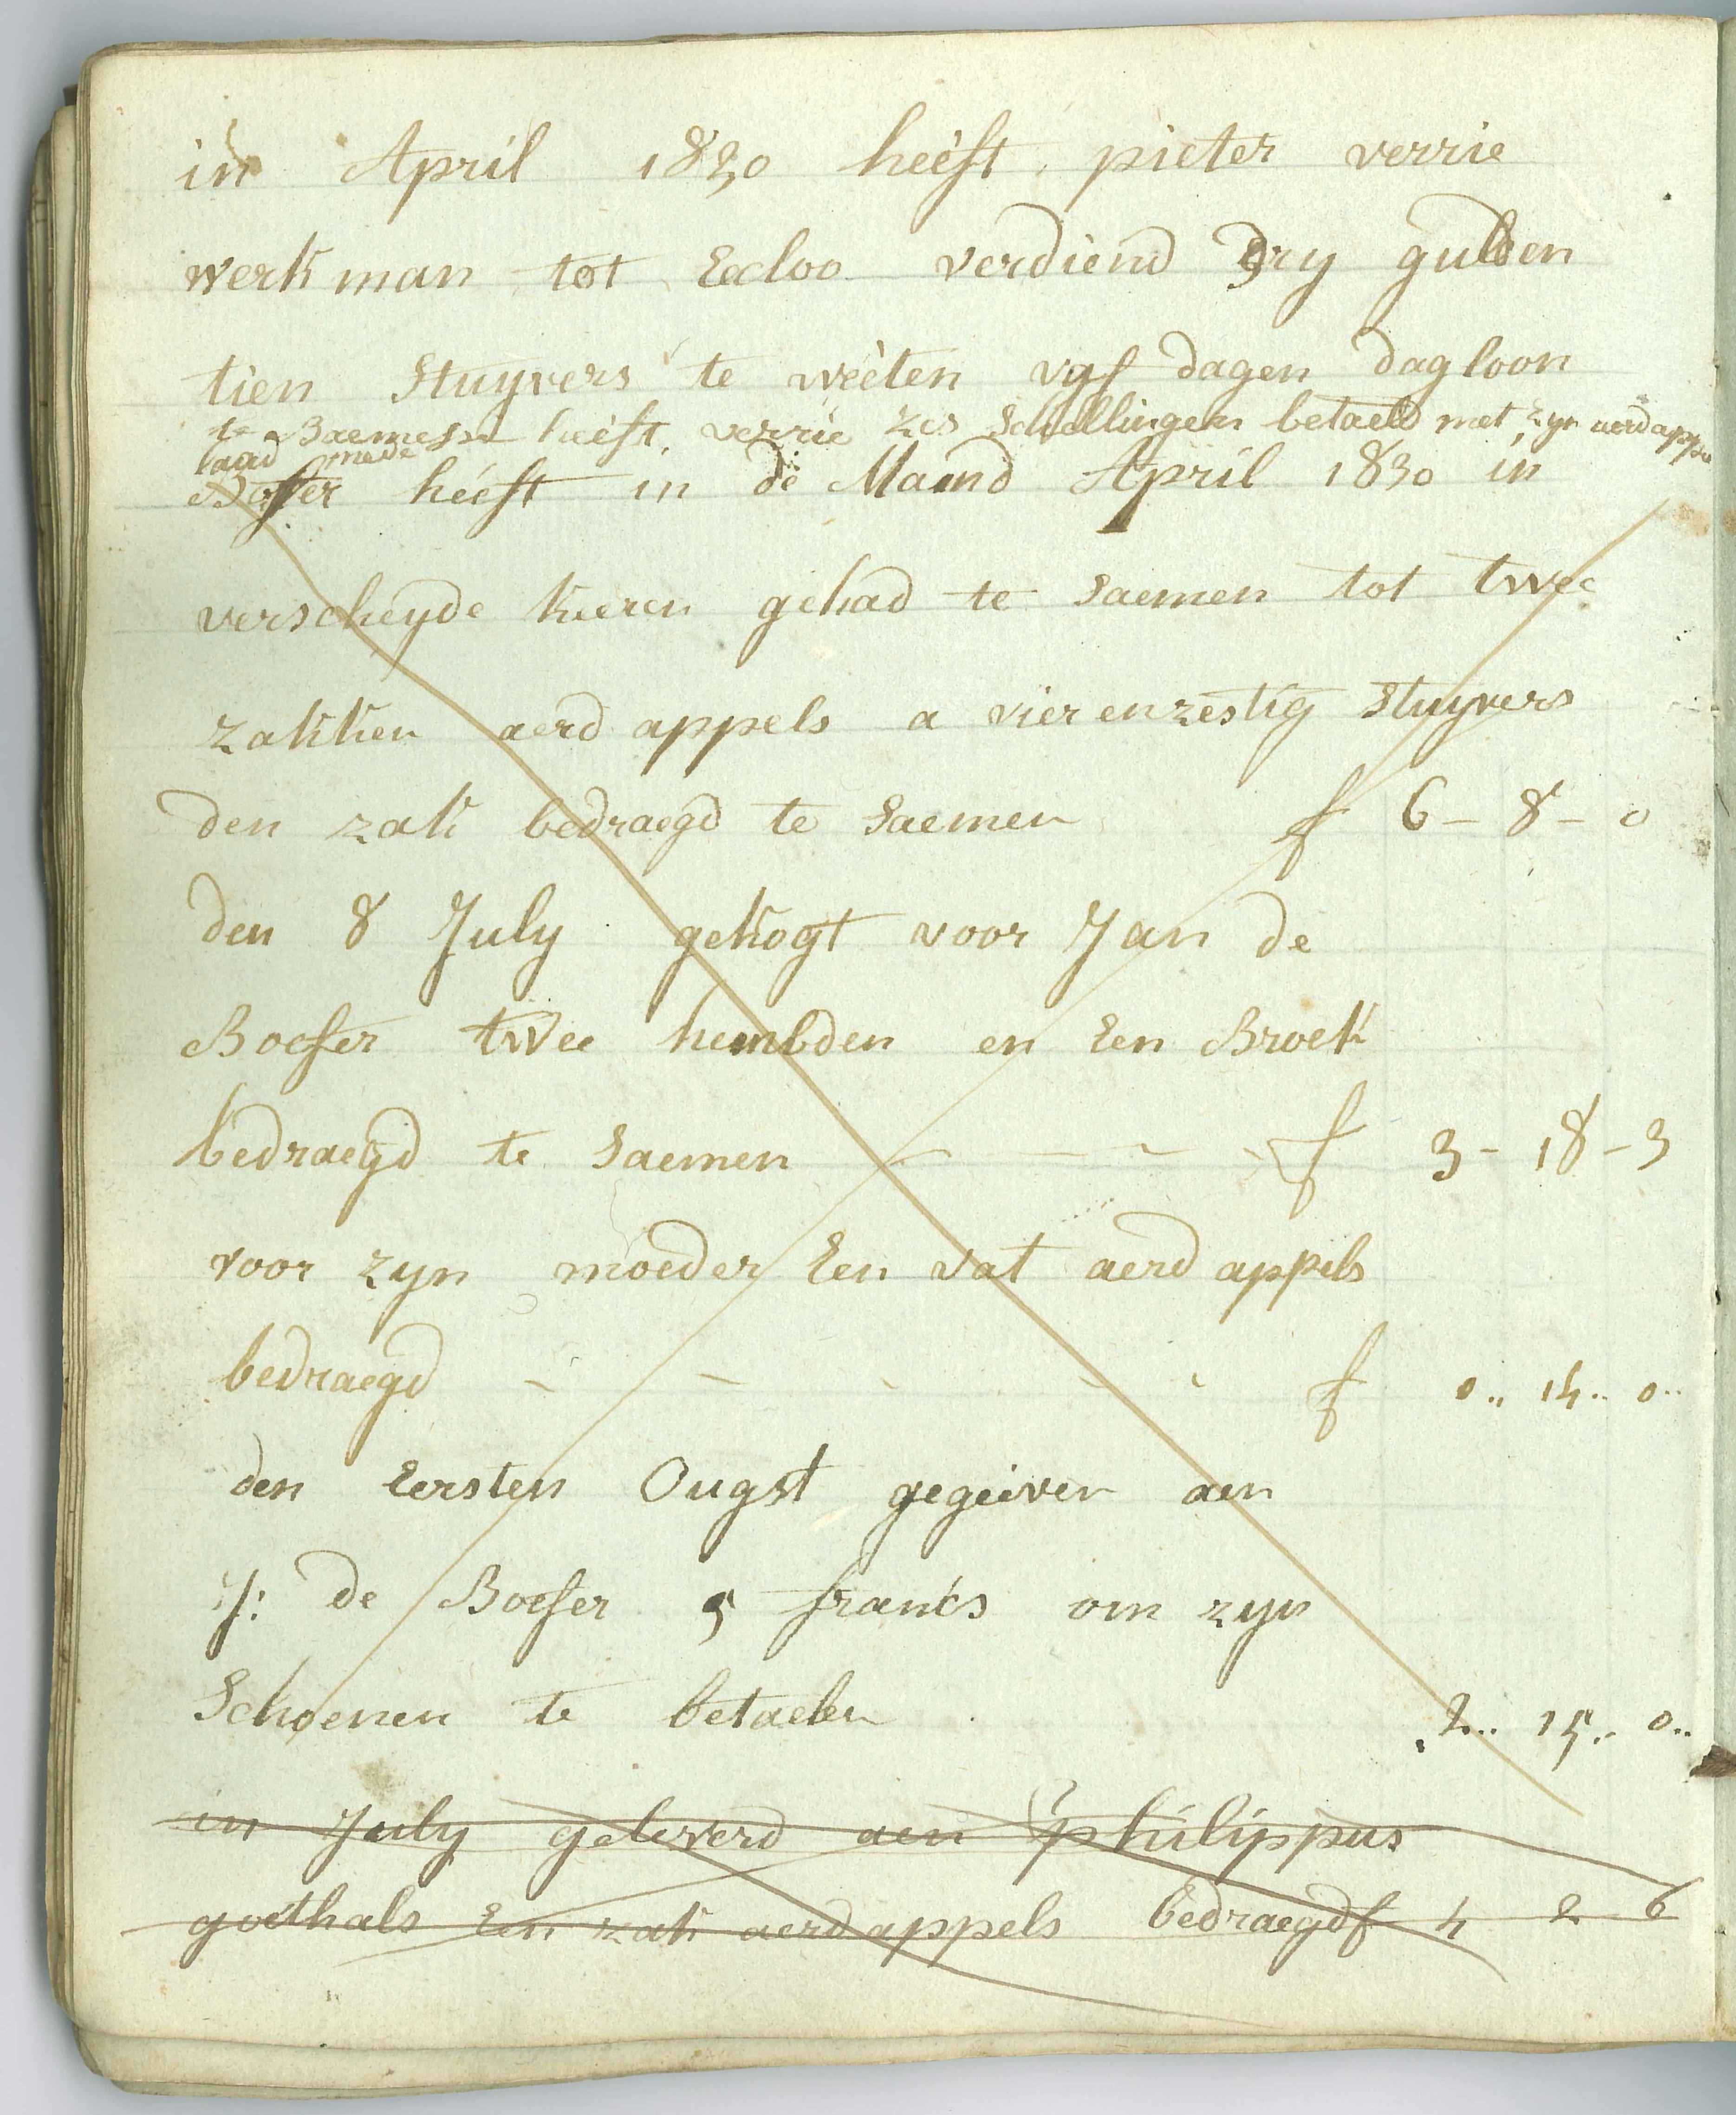 in April 1830 heeft pieter verrie
werkman tot Eecloo verdiend dry gulden
tien Stuyvers te wèèten vyf dagen dagloon
te Baemesse heeft verrie zes Schellingen betaeld met zyn aerdappe
laad mede
Boeser heeft in de Maand April 1830 in
verscheyde keeren gehad te saemen tot twee
zakken aerd appels a vier en zestig Stuyvers
den zak bedraegd te saemen f 6 - 8 - 0
den 8 July gekogt voor Jan de
Boeser twee hembden en Een Broek
bedraegd te saemen - - - f 3 - 18 - 3
voor zyn moeder Een vat aerd appels
bedraegd - - - - - f 0.. 14.. 0..
den Eersten Ougst gegeiven aen
J: de Boeser 5 francs om zyn
Schoenen te betaelen 2.. 15.. 0..
in July geleverd aen philippus
goethals Een zak aerdappels bedraegd f 4 2 6